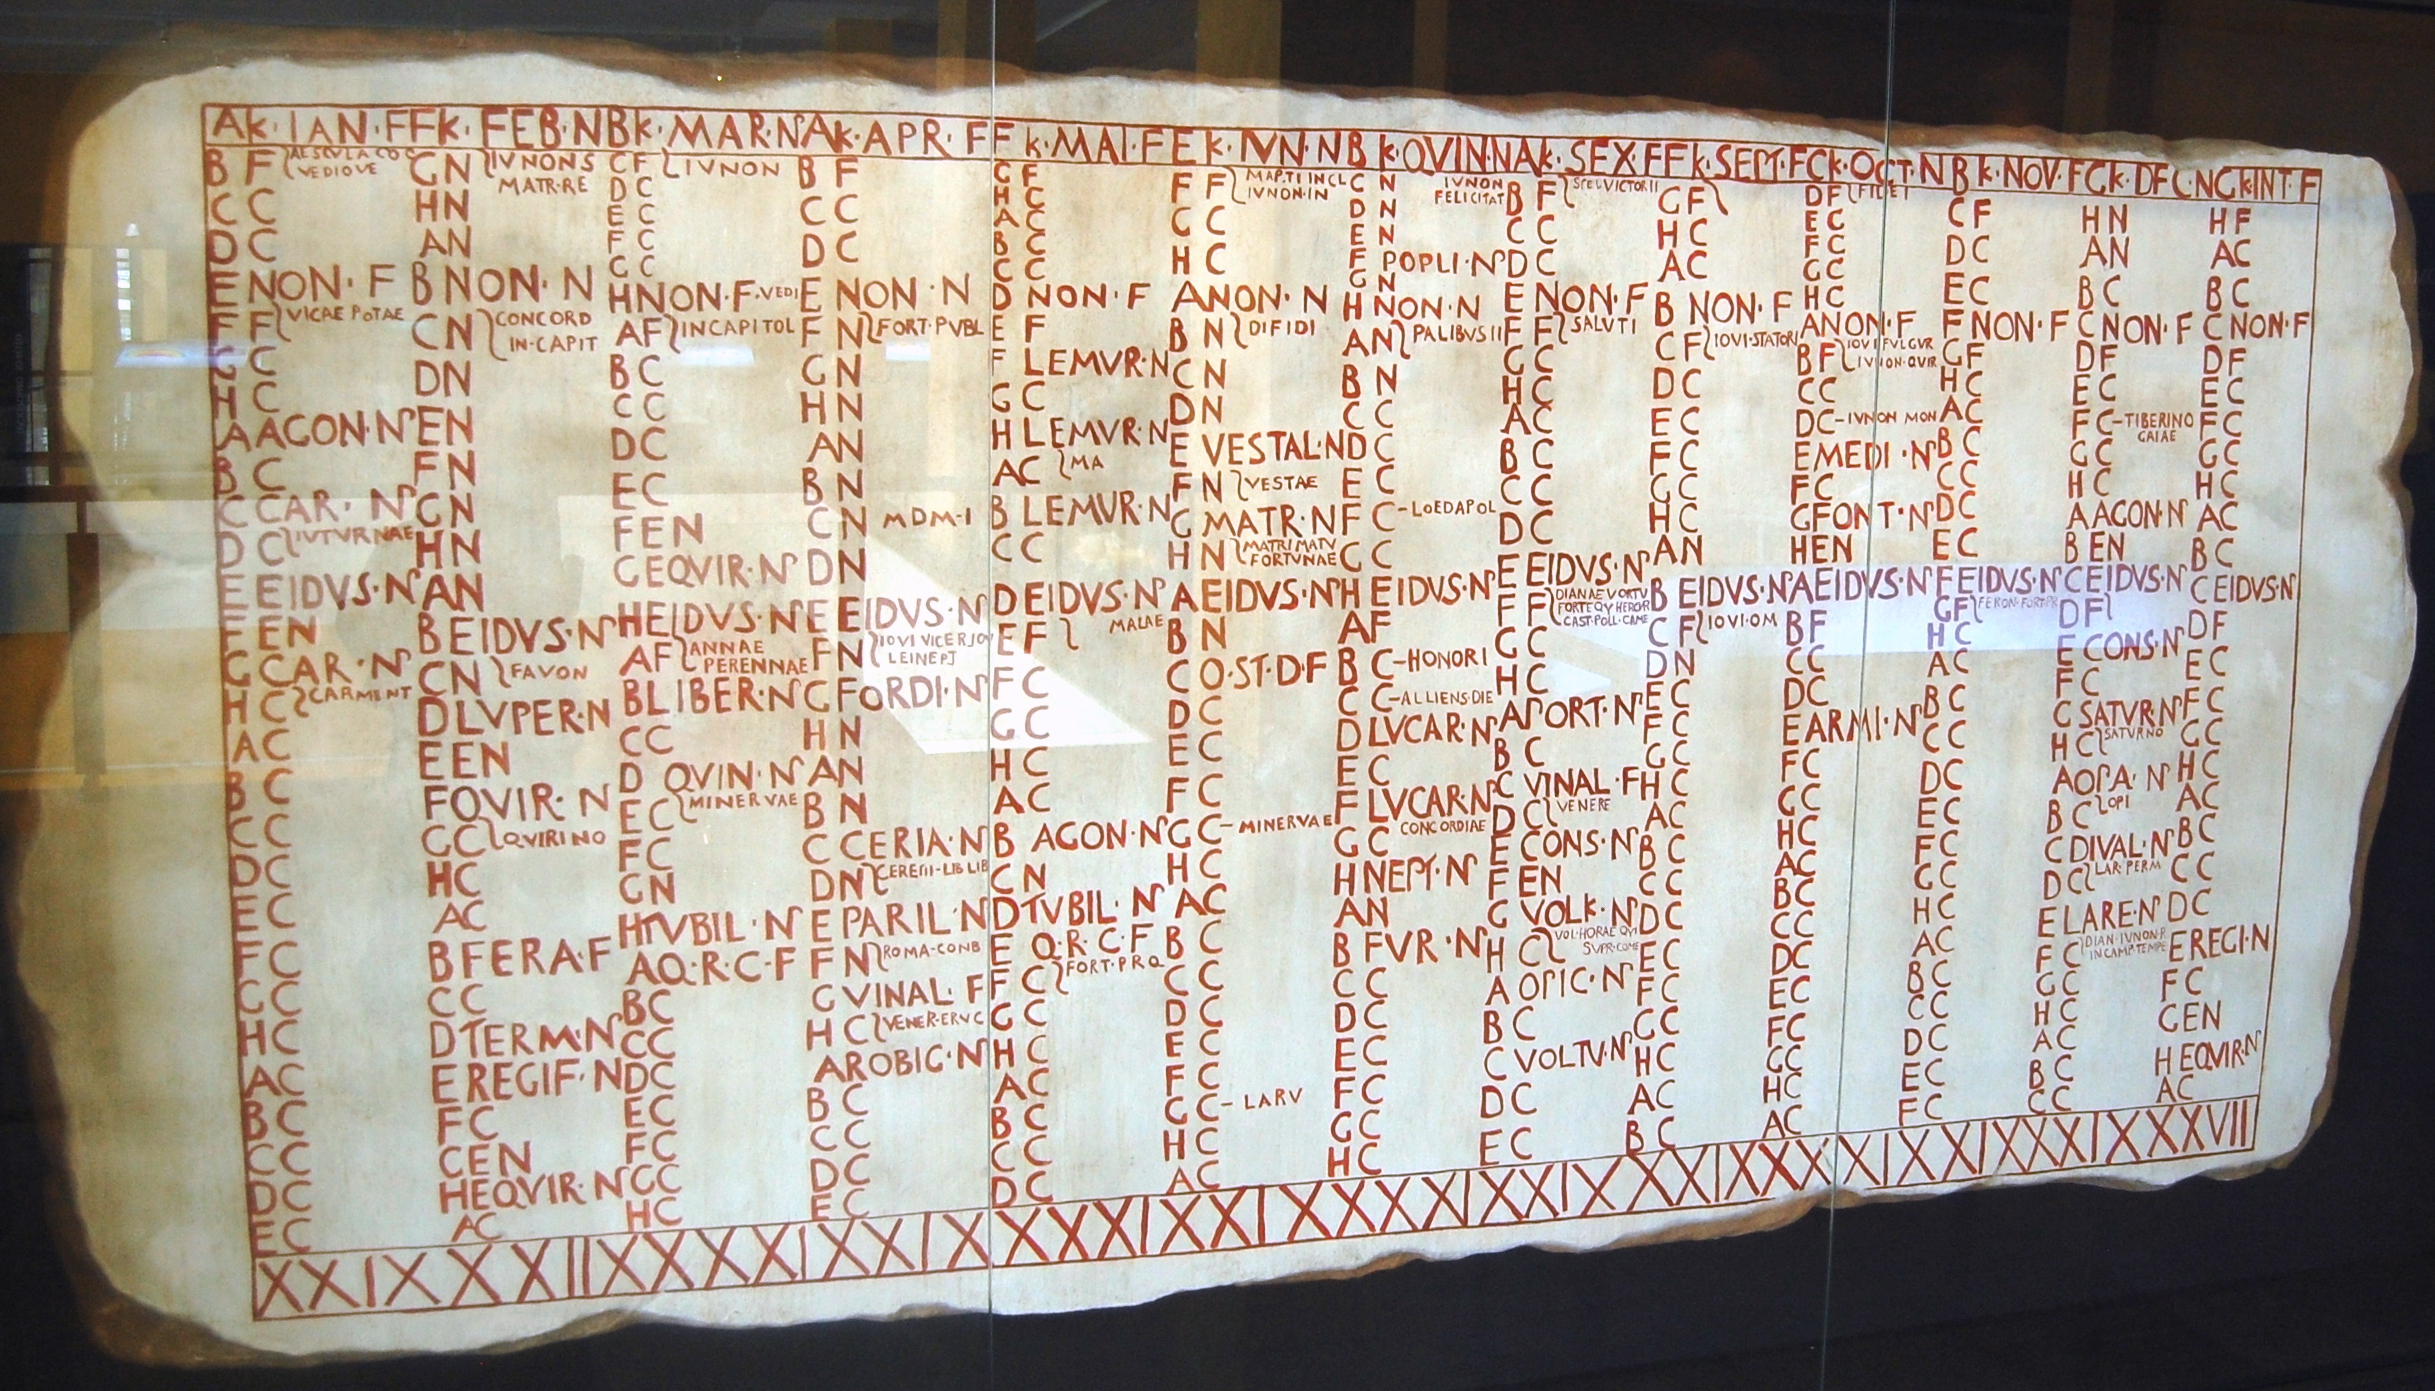 AK·IAN·F FK·FEB·N BK·MAR·N AK·APR·F FK·MAI·F EK·IVN·N BK·QVIN·N AK·SEX·F FK·SEPT·F CK·OCT·N BK·NOV·F CK·DEC·N GK·INT·F
B F AESCVLA CO C
VEDIOVE
C C
D C
E NON·F
F F VICAE POTAE
G C
H C
A AGON·N
B C
C CAR·N
D C IVTVRNAE
E EIDVS·N
F EN
G CAR·N
H C CARMENT
A C
B C
C C
D C
E C
F C
G C
H C
A C
B C
C C
D C
E C
G N IVNON S
MATR·RE
H N
A N
B NON·N
C N CONCORD
IN·CAPIT
D N
E N
F N
G N
H N
A N
B EIDVS·N
C N FAVON
D LVPER·N
E EN
F QVIR·N
G C QVIRINO
H C
A C
B FERA·F
C C
D TERM·N
E REGIF·N
F C
G EN
H EQVIR·N
A C
C F IVNON
D C
E C
F C
G C
H NON·F·VEDI
A F IN CAPITOL
B C
C C
D C
E C
F EN
G EQVIR·N
H EIDVS·N
A F ANNAE
PERENNAE
B LIBER·N
C C
D QVIN·N
E C MINERVAE
F C
G N
H TVBIL·N
A Q·R·C·F
B C
C C
D C
E C
F C
G C
H C
B F
C C
D C
E NON·N
F N FORT·PVBL
G N
H N
A N
B N
C N MDM·I
D N
E EIDVS·N
F N IOVI VICE
G FORDI·N
H N
A N
B N
C CERIA·N
D N
E PARIL·N
F N ROMA·COND
G VINAL·F
H C VENER·ERVC
A ROBIG·N
B C
C C
D C
E C
G F
H C
A C
B C
C C
D NON·F
E F
F LEMVR·N
G C
H LEMVR·N
A C MA
B LEMVR·N
C C
D EIDVS·N
E F MAIAE
F C
G C
H C
A C
B AGON·N
C N
D TVBIL·N
E Q·R·C·F
F C FORT·PR·Q
G C
H C
A C
B C
C C
D C
F F MARTI IN CL
IVNON·IN
G C
H C
A NON·N
B N DI FIDI
C N
D N
E VESTAL·N
F N VESTAE
G MATR·N
H N MATRI MATV
FORTVNAE
A EIDVS·N
B N
C Q·ST·D·F
D C
E C
F C
G C MINERVAE
H C
A C
B C
C C
D C
E C
F C
G C LARV
H C
A C
C N IVNON
FELICITAT
D N
E N
F POPLI·N
G N
H NON·N
A N PALIBVS II
B N
C C
D C
E C
F C LOEDAPOL
G C
H EIDVS·N
A F
B C HONORI
C C ALLIENS·DIE
D LVCAR·N
E C
F LVCAR·N
G C CONCORDIAE
H NEPT·N
A N
B FVR·N
C C
D C
E C
F C
G C
H C
B F SPEI VICTOR II
C C
D C
E NON·F
F F SALVTI
G C
H C
A C
B C
C C
D C
E EIDVS·N
F F DIANAE VORTV
FORTE QV HERQR
CAST·POLL·CAME
G C
H C
A PORT·N
B C
C VINAL·F
D C VENERE
E CONS·N
F EN
G VOLK·N
H C VOL·HORAE QVI
SVPR·COME
A OPIC·N
B C
C VOLTV·N
D C
E C
G F
H C
A C
B NON·F
C F IOVI·STATORI
D C
E C
F C
G C
H C
A N
B EIDVS·N
C F IOVI·OM
D N
E C
F C
G C
H C
A C
B C
C C
D C
E C
F C
G C
H C
A C
B C
D F FIDEI
E C
F C
G C
H C
A NON·F
B F IOVI FVLGVR
IVNON·QVIR
C C
D C IVNON MON
E MEDI·N
F C
G FONT·N
H EN
A EIDVS·N
B F
C C
D C
E ARMI·N
F C
G C
H C
A C
B C
C C
D C
E C
F C
G C
H C
A C
C F
D C
E C
F NON·F
G F
H C
A C
B C
C C
D C
E C
F EIDVS·N
G F FERON·FORT·PR
H C
A C
B C
C C
D C
E C
F C
G C
H C
A C
B C
C C
D C
E C
F C
H N
A N
B C
C NON·F
D F
E C
F C TIBERINO
GAIAE
G C
H C
A AGON·N
B EN
C EIDVS·N
D F
E CONS·N
F C
G SATVR·N
H C SATVRNO
A OPA·N
B C OPI
C DIVAL·N
D C LAR·PERM
E LARE·N
F C DIAN·IVNON·R
IN CAMP·TEMPE
G C
H C
A C
B C
C C
H F
A C
B C
C NON·F
D F
E C
F C
G C
H C
A C
B C
C EIDVS·N
D F
E C
F C
G C
H C
A C
B C
C C
D C
E REGI·N
F C
G EN
H EQVIR·N
A C
XXIX XXIIX XXXI XXIX XXXI XXIX XXXI XXIX XXIX XXXI XXIX XXIX XXVII